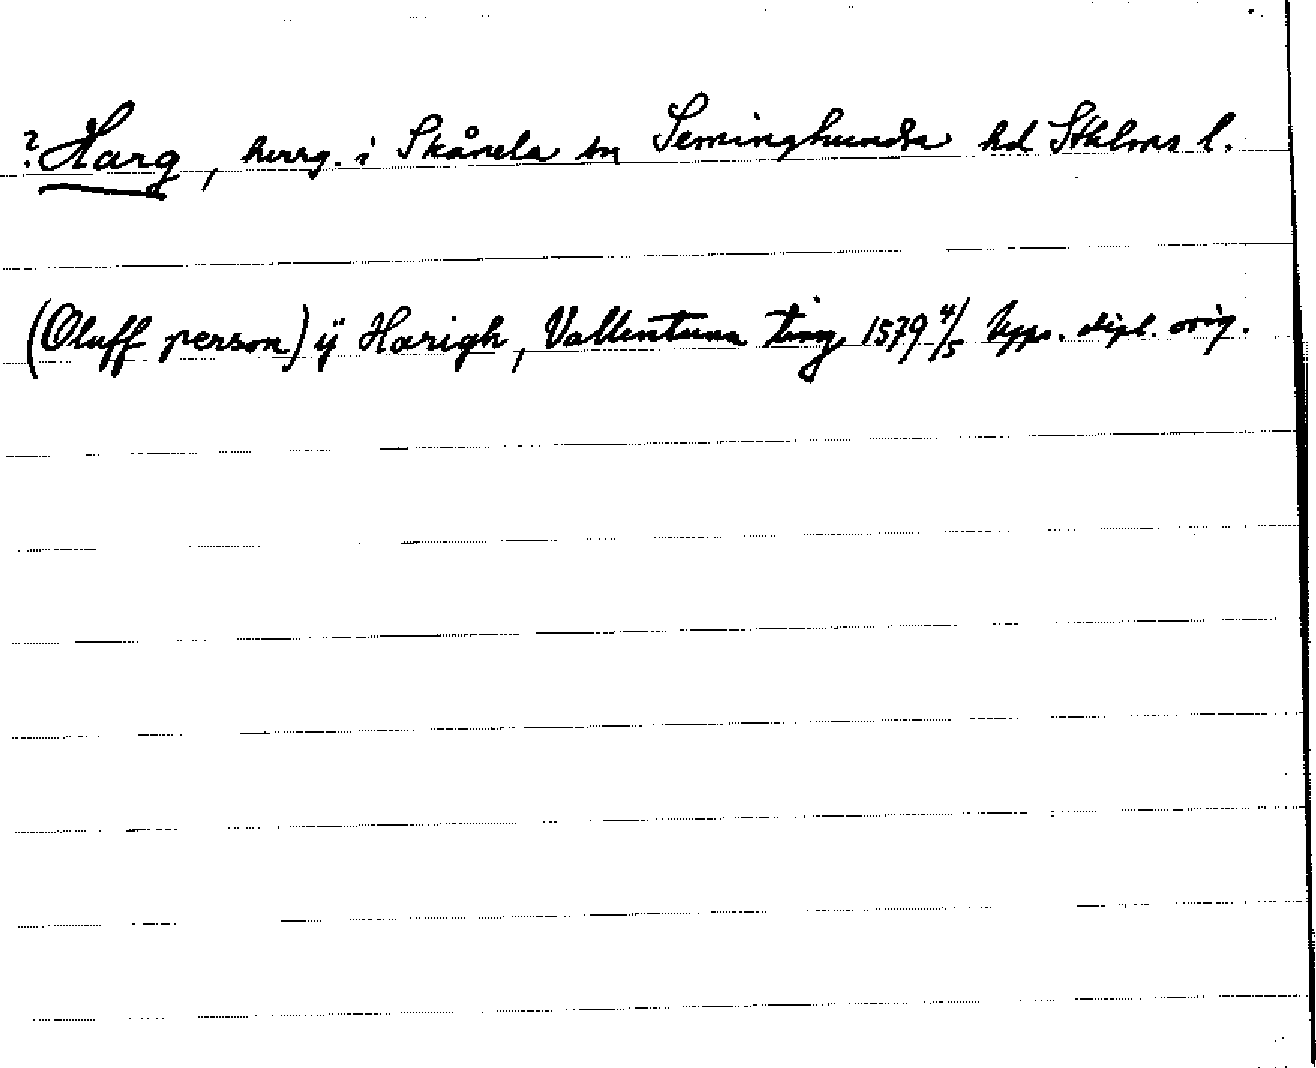 ? Harg, herrg. i Skånela sn Seminghundra hd Sthlms l.
(Oluff person) ÿ Harigh, Vallentuna ting 1579 4/5 Upps. dipl. orig.